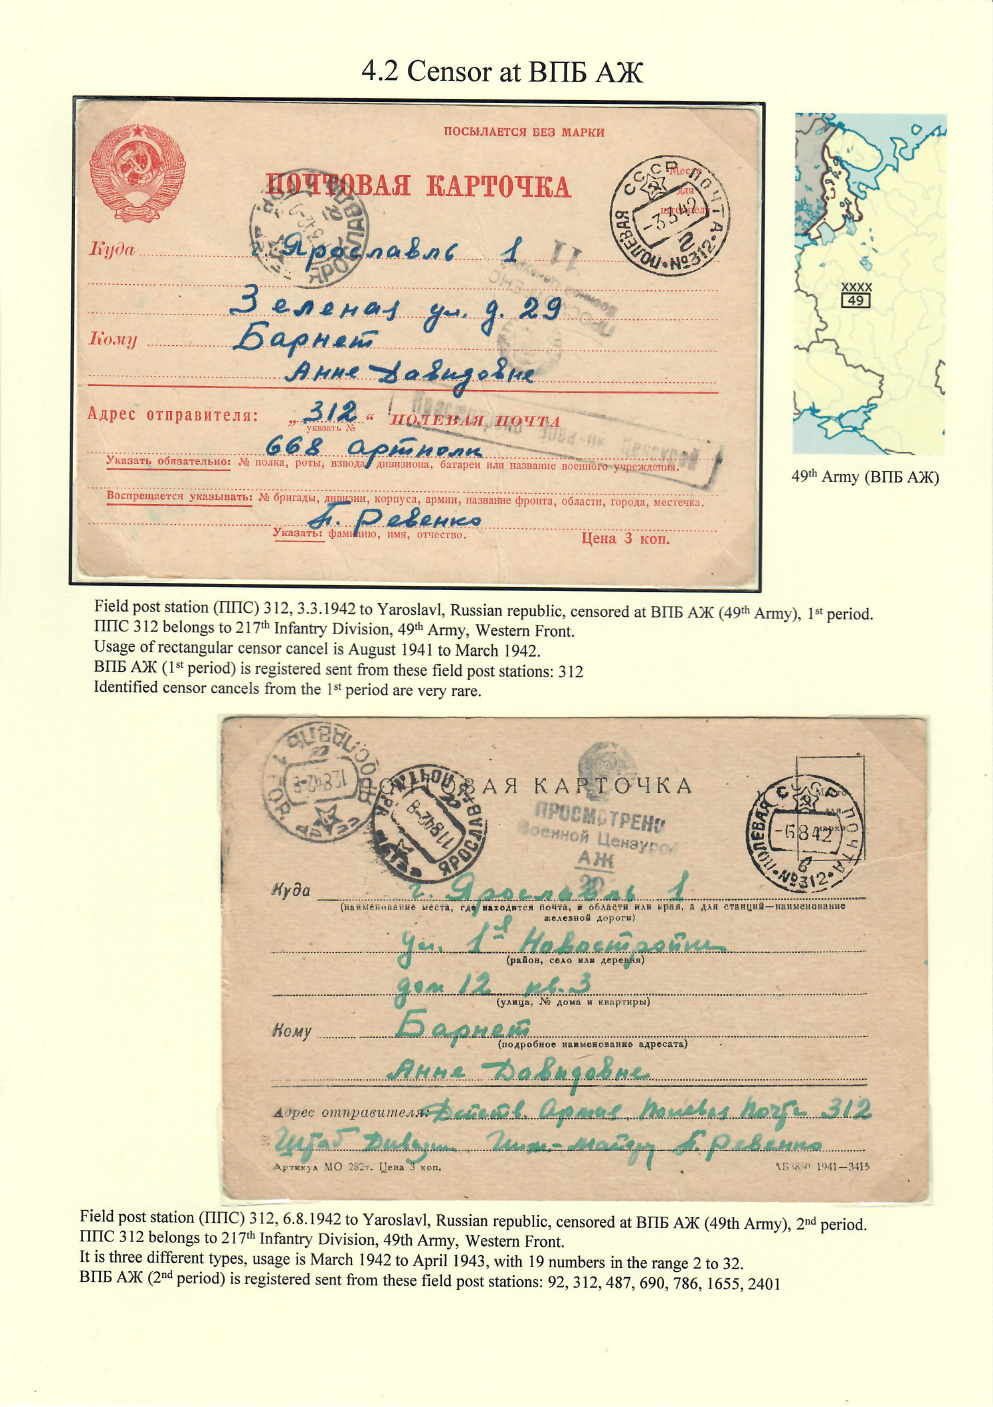 4.2 Censor at ВПБ АЖ
ПОСЫЛАЕТСЯ БЕЗ МАРКИ
ПОЧТОВАЯ КАРТОЧКА
СССР ПОЧТА
-3.3.42
г
ПОЛЕВАЯ • №312 •
Куда Ярославль 1
11
ПРОСМОТРЕНО
Военной Цензурой
Зеленая ул. д. 29
Кому Барнет
Анне Давидовне
Адрес отправителя: „ 312 “ ПОЛЕВАЯ ПОЧТА
указать №
668 артполк
Указать обязательно: № полка, роты, взвода, дивизиона, батареи или название военного учреждения.
Воспрещается указывать: № бригады, дивизии, корпуса, армии, название фронта, области, города, местечка.
П. Ревенко
Указать: фамилию, имя, отчество.
Цена 3 коп.
XXXX
49
49th Army (ВПБ АЖ)
Field post station (ППС) 312, 3.3.1942 to Yaroslavl, Russian republic, censored at ВПБ АЖ (49th Army), 1st period.
ППС 312 belongs to 217th Infantry Division, 49th Army, Western Front.
Usage of rectangular censor cancel is August 1941 to March 1942.
ВПБ АЖ (1st period) is registered sent from these field post stations: 312
Identified censor cancels from the 1st period are very rare.
ЯРОСЛАВЛЬ
12842-8
ЯРОСЛАВЛЬ ПОЧТА
11842-8
КАРТОЧКА
ПРОСМОТРЕНО
Военной Цензурой
АЖ
20
СССР ПОЧТА
-6.8.42
в
ПОЛЕВАЯ • №312 •
Куда г. Ярославль 1
(наименование места, где находится почта, и области или края, а для станций—наименование
железной дороги)
ул. 1я Новостройки
(район, село или деревня)
дом 12 кв. 3
(улица, № дома и квартиры)
Кому Барнет
(подробное наименование адресата)
Анне Давидовне
Адрес отправителя: Действ. Армия Полевая Почта 312
Штаб Дивизии П. Ревенко
Артикул МО 282т. Цена 3 коп.
1941—3415
Field post station (ППС) 312, 6.8.1942 to Yaroslavl, Russian republic, censored at ВПБ АЖ (49th Army), 2nd period.
ППС 312 belongs to 217th Infantry Division, 49th Army, Western Front.
It is three different types, usage is March 1942 to April 1943, with 19 numbers in the range 2 to 32.
ВПБ АЖ (2nd period) is registered sent from these field post stations: 92, 312, 487, 690, 786, 1655, 2401